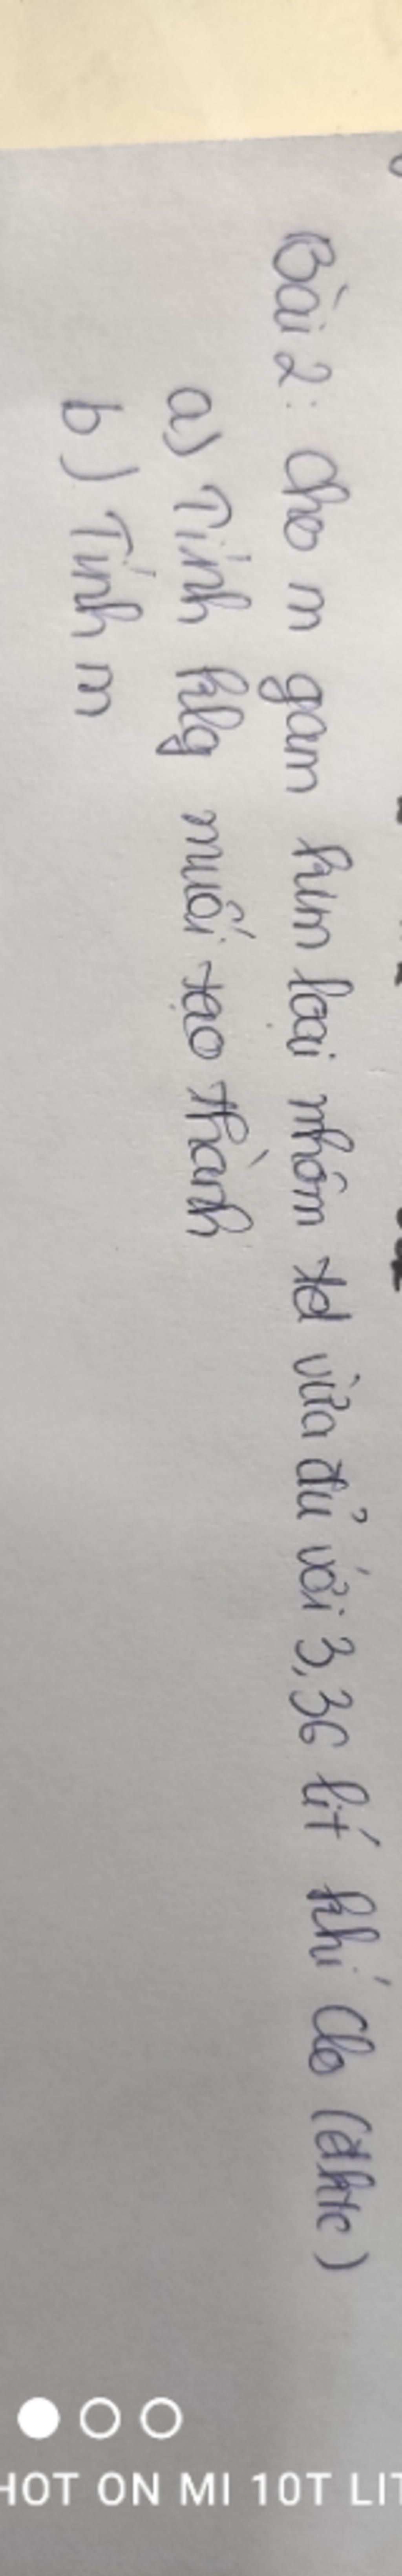 Bài 2: Cho m gam kim loại nhôm td vừa đủ với 3,36 lít khí clo (đktc)
a) Tính klg muối tạo thành
b) Tính m
HOT ON MI 10T LIT